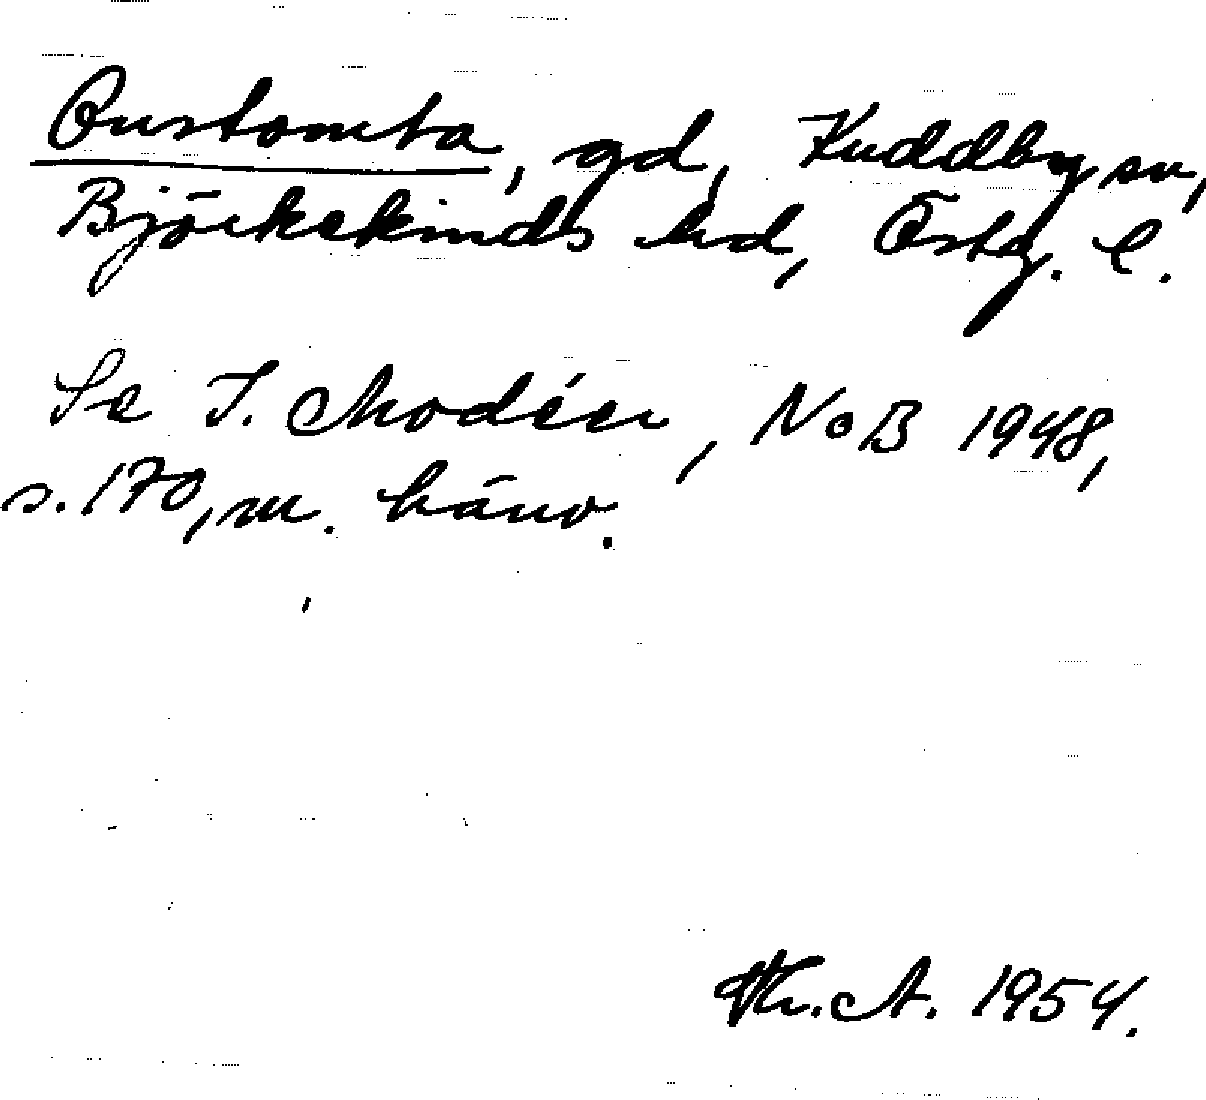 Qustomta, gd, Kuddby sn,
Björkekinds hd, Östg. l.
Se I. Modéer, NoB 1948,
s. 170, m. hänv.
Th. A. 1954.